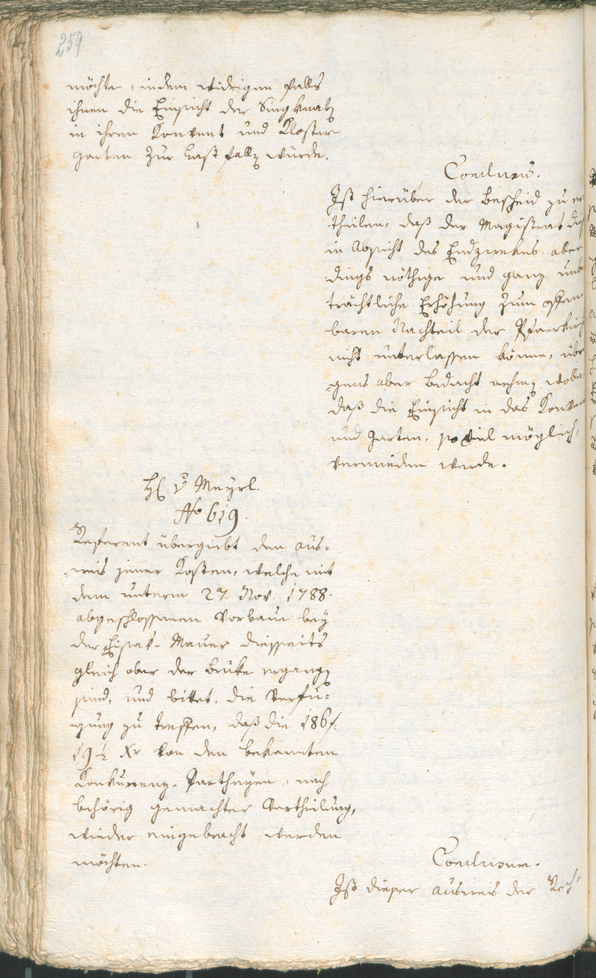 259
möchte, indem widrigen falls
ihnen die Einsicht der Singknab
in ihren Konvent und Kloster
garten zur Last fallen würde.
Conclusum.
Ist hierüber der Bescheid zu er
theilen, daß der Magistrat die
in Absicht des Endzwekes aber
dings nöthige und ganz unb
trächtliche Erhöhung zum offen
baren Nachteil der Pfarrkir
nicht unterlassen könne, übr
gens aber bedacht nehmen wolle
daß die Einsicht in das Konven
und Garten, so viel möglich,
vermieden werde.
H v Meyrl.
No 619.
Referent übergiebt den aus-
weis jener Kosten, welche mit
dem unterm 27. Nov. 1788.
abgeschlossenen Vorbaue bey
der Eisak-Mauer diesseits
gleich ober der Brüke ergangen
sind, und bittet, die Verfü-
gung zu treffen, daß die 186 f.
19 ½ Xr von den bekannten
Konkurrenz-Partheyen, nach
behörig gemachter Vertheilung,
wieder eingebracht werden
möchten.
Conclusum.
Ist dieser ausweis der Rech